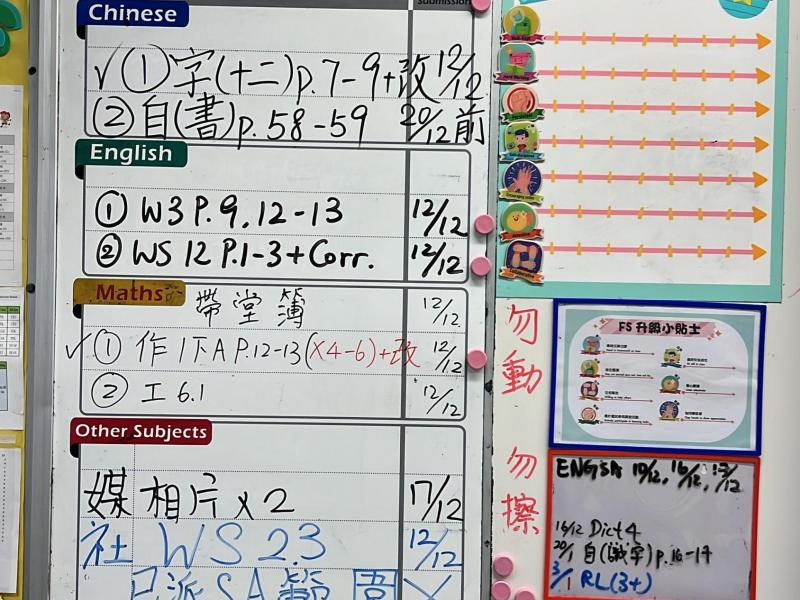 Submission
Chinese
✓① 字(十二)p.7-9+改 12/12
② 自(書)p.58-59 20/12前
English
① W3 P.9, 12-13 12/12
② WS 12 P.1-3+Corr. 12/12
Maths
帶堂簿 12/12
✓① 作1下A P.12-13(x4-6)+改 12/12
② 工6.1 12/12
Other Subjects
媒 相片x2 17/12
社 WS 2.3 12/12
已派SA範圍
勿動
勿擦
FS 升級小貼士
ENG SA 10/12, 16/12, 17/12
16/12 Dict 4
20/1 自(識字)p.16-17
3/1 RL(3+)